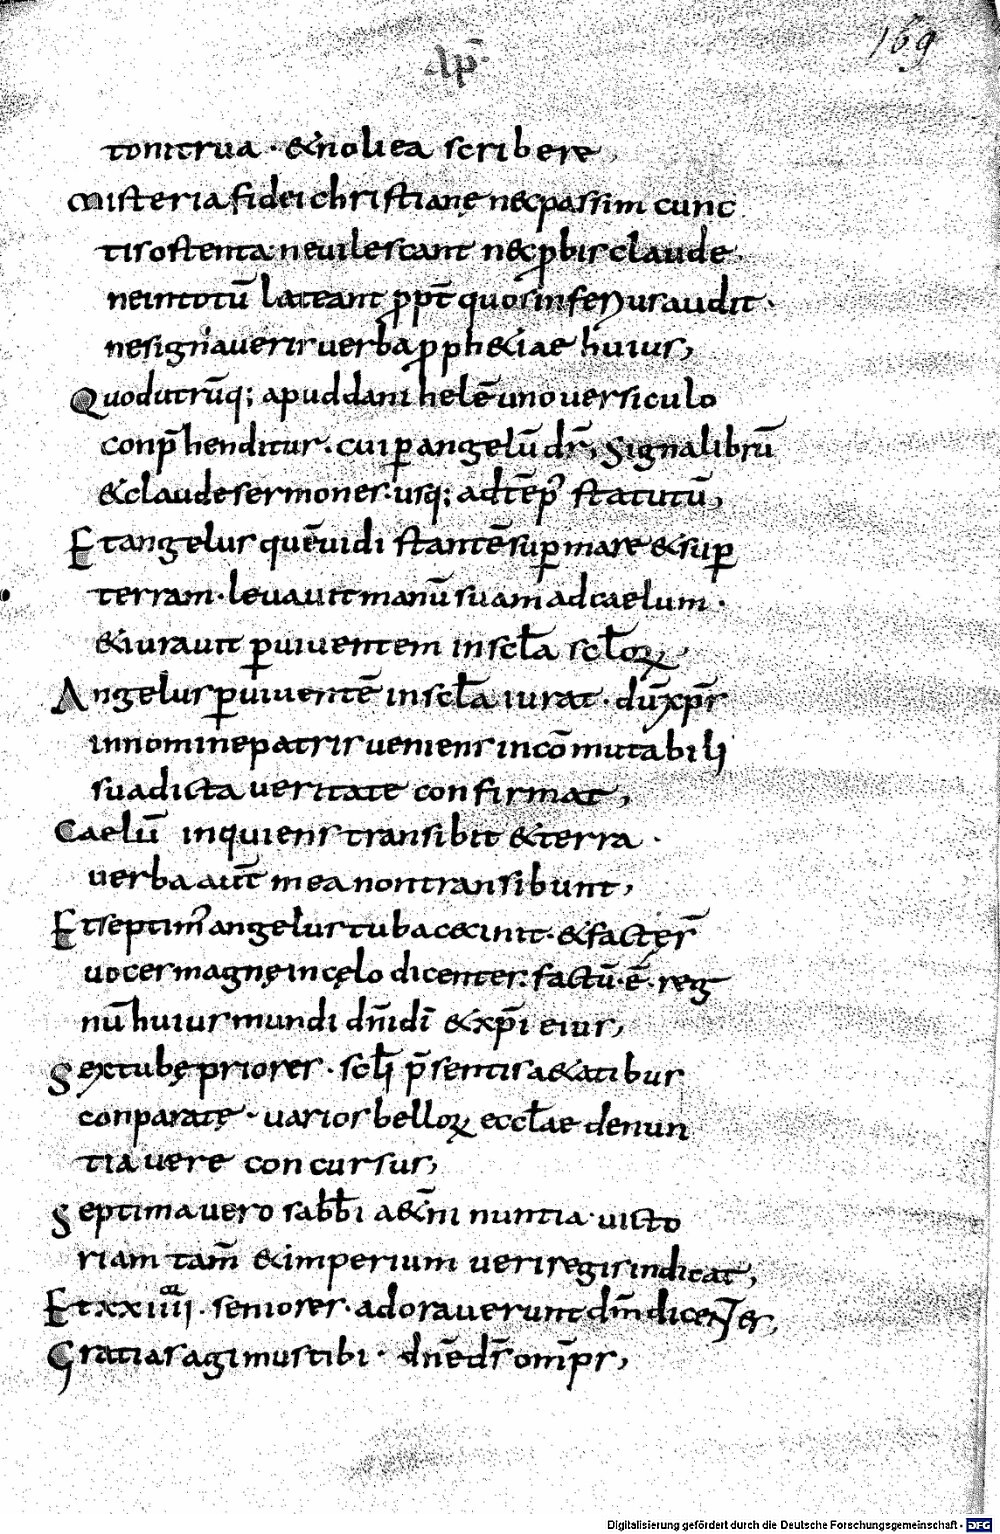 Ap̄
169
tonitrua · & noli ea scribere,
Misteria fidei christianę nec passim cunc
tis ostenta ne vilescant nec ꝓbis claude
ne in totū lateant ꝓpt̄ quos inferius audit ·
ne signaveris verba ꝓph&iae huius,
Quod utrūq; apud danihelē uno versiculo
conp̄henditur. cui ꝑ angelū dr̄, Signa librū
& claude sermones usq; ad tēp᾽ statutū,
Et angelus quē vidi stantē suꝑ mare & suꝑ
terram · levavit manū suam ad caelum ·
& iuravit ꝑ viventem in scła scłoꝝ,
Angelus ꝑ viventē in scła iurat · dū xp̄s
in nomine patris veniens incōmutabili
sua dicta veritate confirmat,
Caelū inquiens transibit & terra ·
verba aut̄ mea non transibunt,
Et septim᾽ angelus tuba cecinit · & factę s̄
voces magnę in cęlo dicentes · factū · ē · reg
nū huius mundi dn̄i dī & xp̄i eius,
Sex tubę priores · scłi p̄sentis a&atibus
conparatę · varios belloꝝ eccłae denun
tiavere concursus,
Septima vero sabb̄i a&n̄i nuntia · victo
riam tam̄ & imperium veri regis indicat,
Et xxiiii · seniores · adoraverunt dn̄m dicentes,
Gratias agimus tibi · dn̄e ds̄ om̄ps,
Digitalisierung gefördert durch die Deutsche Forschungsgemeinschaft - DFG